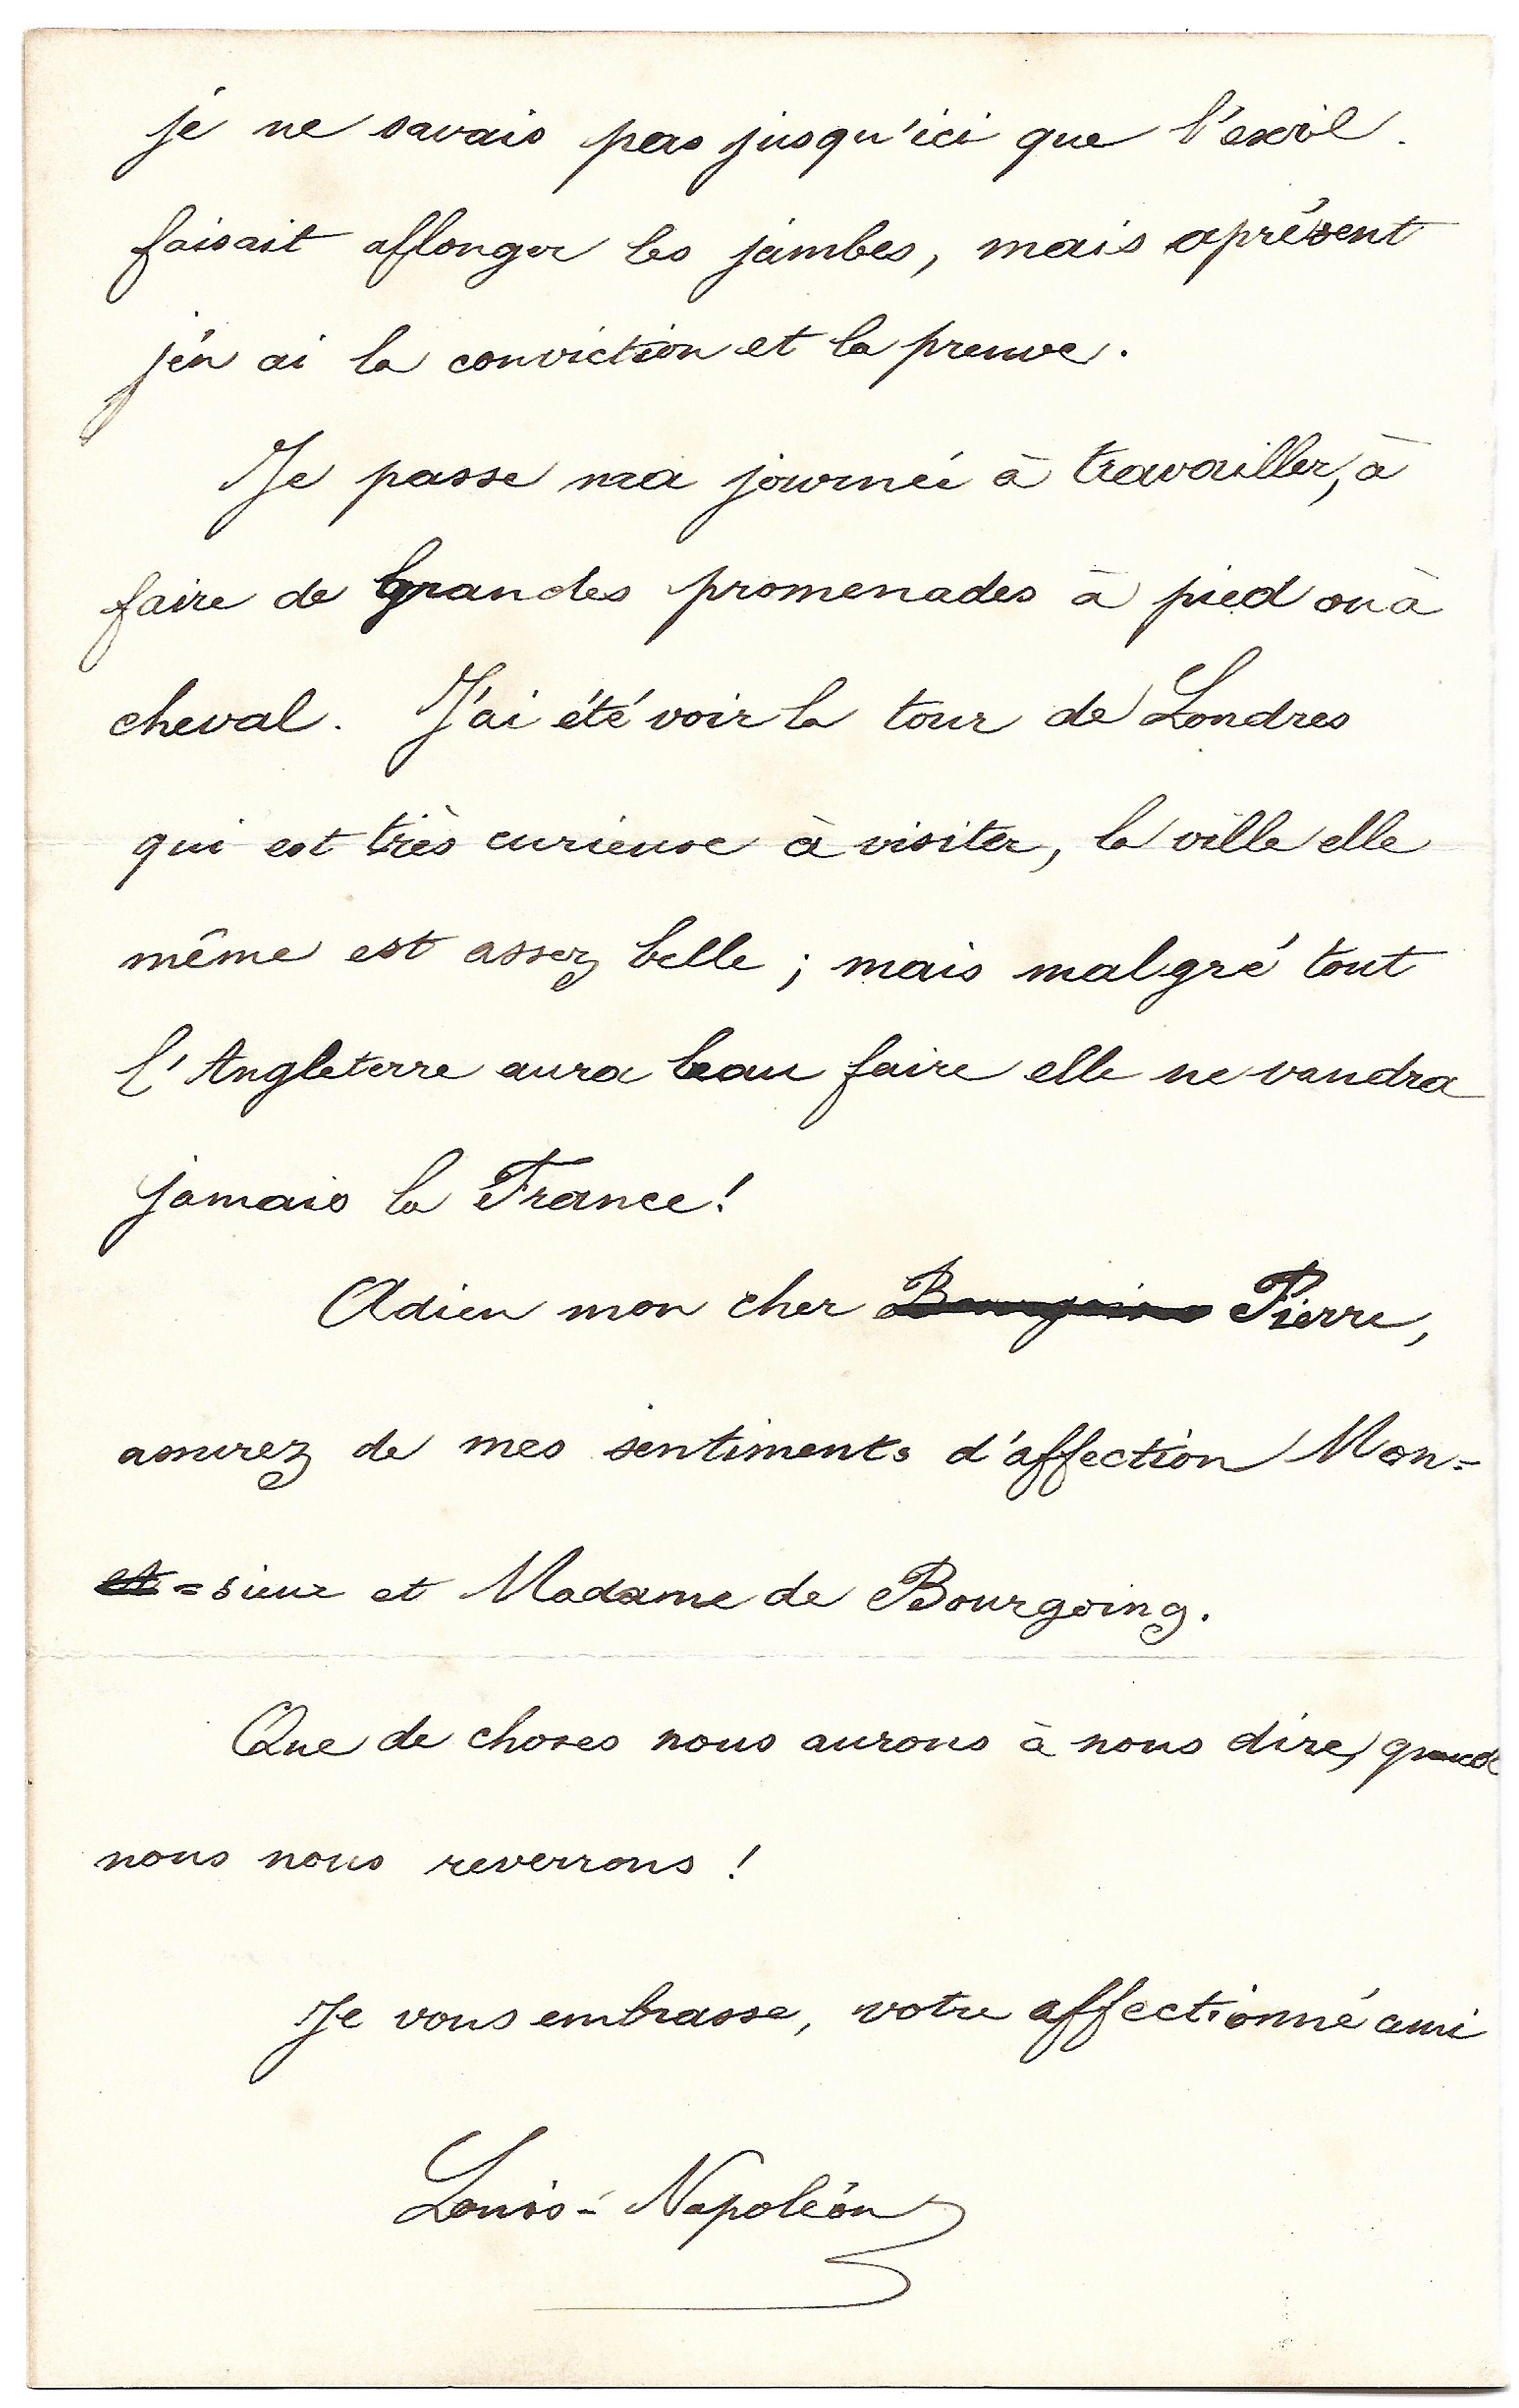 je ne savais pas jusqu'ici que l'exil.
faisait allonger les jambes, mais aprésent
j'en ai la conviction et la preuve.
Je passe ma journée à travailler, à
faire de grandes promenades à pied ou à
cheval. J'ai été voir la tour de Londres
qui est très curieuse à visiter, la ville elle
même est assez belle ; mais malgré tout
l'Angleterre aura beau faire elle ne vaudra
jamais la France !
Adieu mon cher Bourgoing Pierre,
assurez de mes sentiments d'affection Mon=
et =sieur et Madame de Bourgoing.
Que de choses nous aurons à nous dire, quand
nous nous reverrons !
Je vous embrasse, votre affectionné ami
Louis-Napoléon